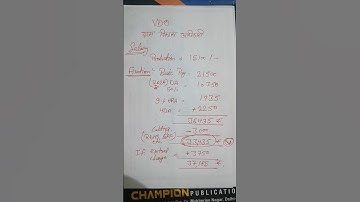 VDO
ग्राम विकास अधिकारी
Salary
Probation = 15100/-
Fixation:- Basic Pay 31500
DA 10750
9% HRA 1935
HDA +2250
36435 ₹
Cutting -3000
33435 ₹
If Extra charge +3750
37185 ₹
CHAMPION PUBLICATION
Mukherjee Nagar, Delhi